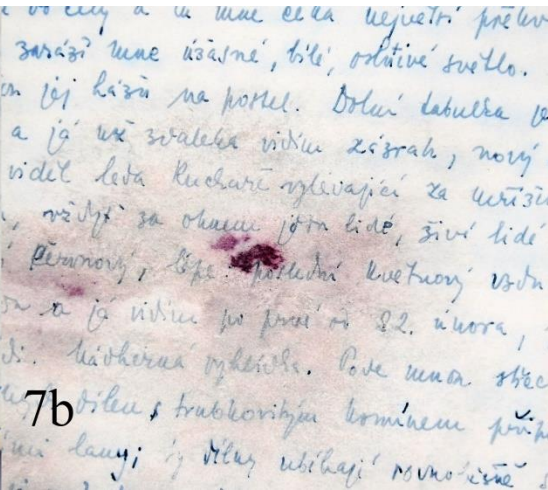 do cely a tu mne čeká největší překv
zarází mne úžasné, bílé, oslnivé světlo.
jej hází na postel. Dolní tabulka je
a já už zdaleka vidím zázrak, nový
viděl leda kuchaře vylévající za mříži
vždyť za oknem jsou lidé, živí lidé
červnový, lépe. poslední květnový vzdu
a já vidím po prvé od 22. února,
Nádherná vyhlídka. Pode mnou střec
dílen s trubkovitým komínem přip
lany; ty dílny ubíhají rovnoběžně
7b